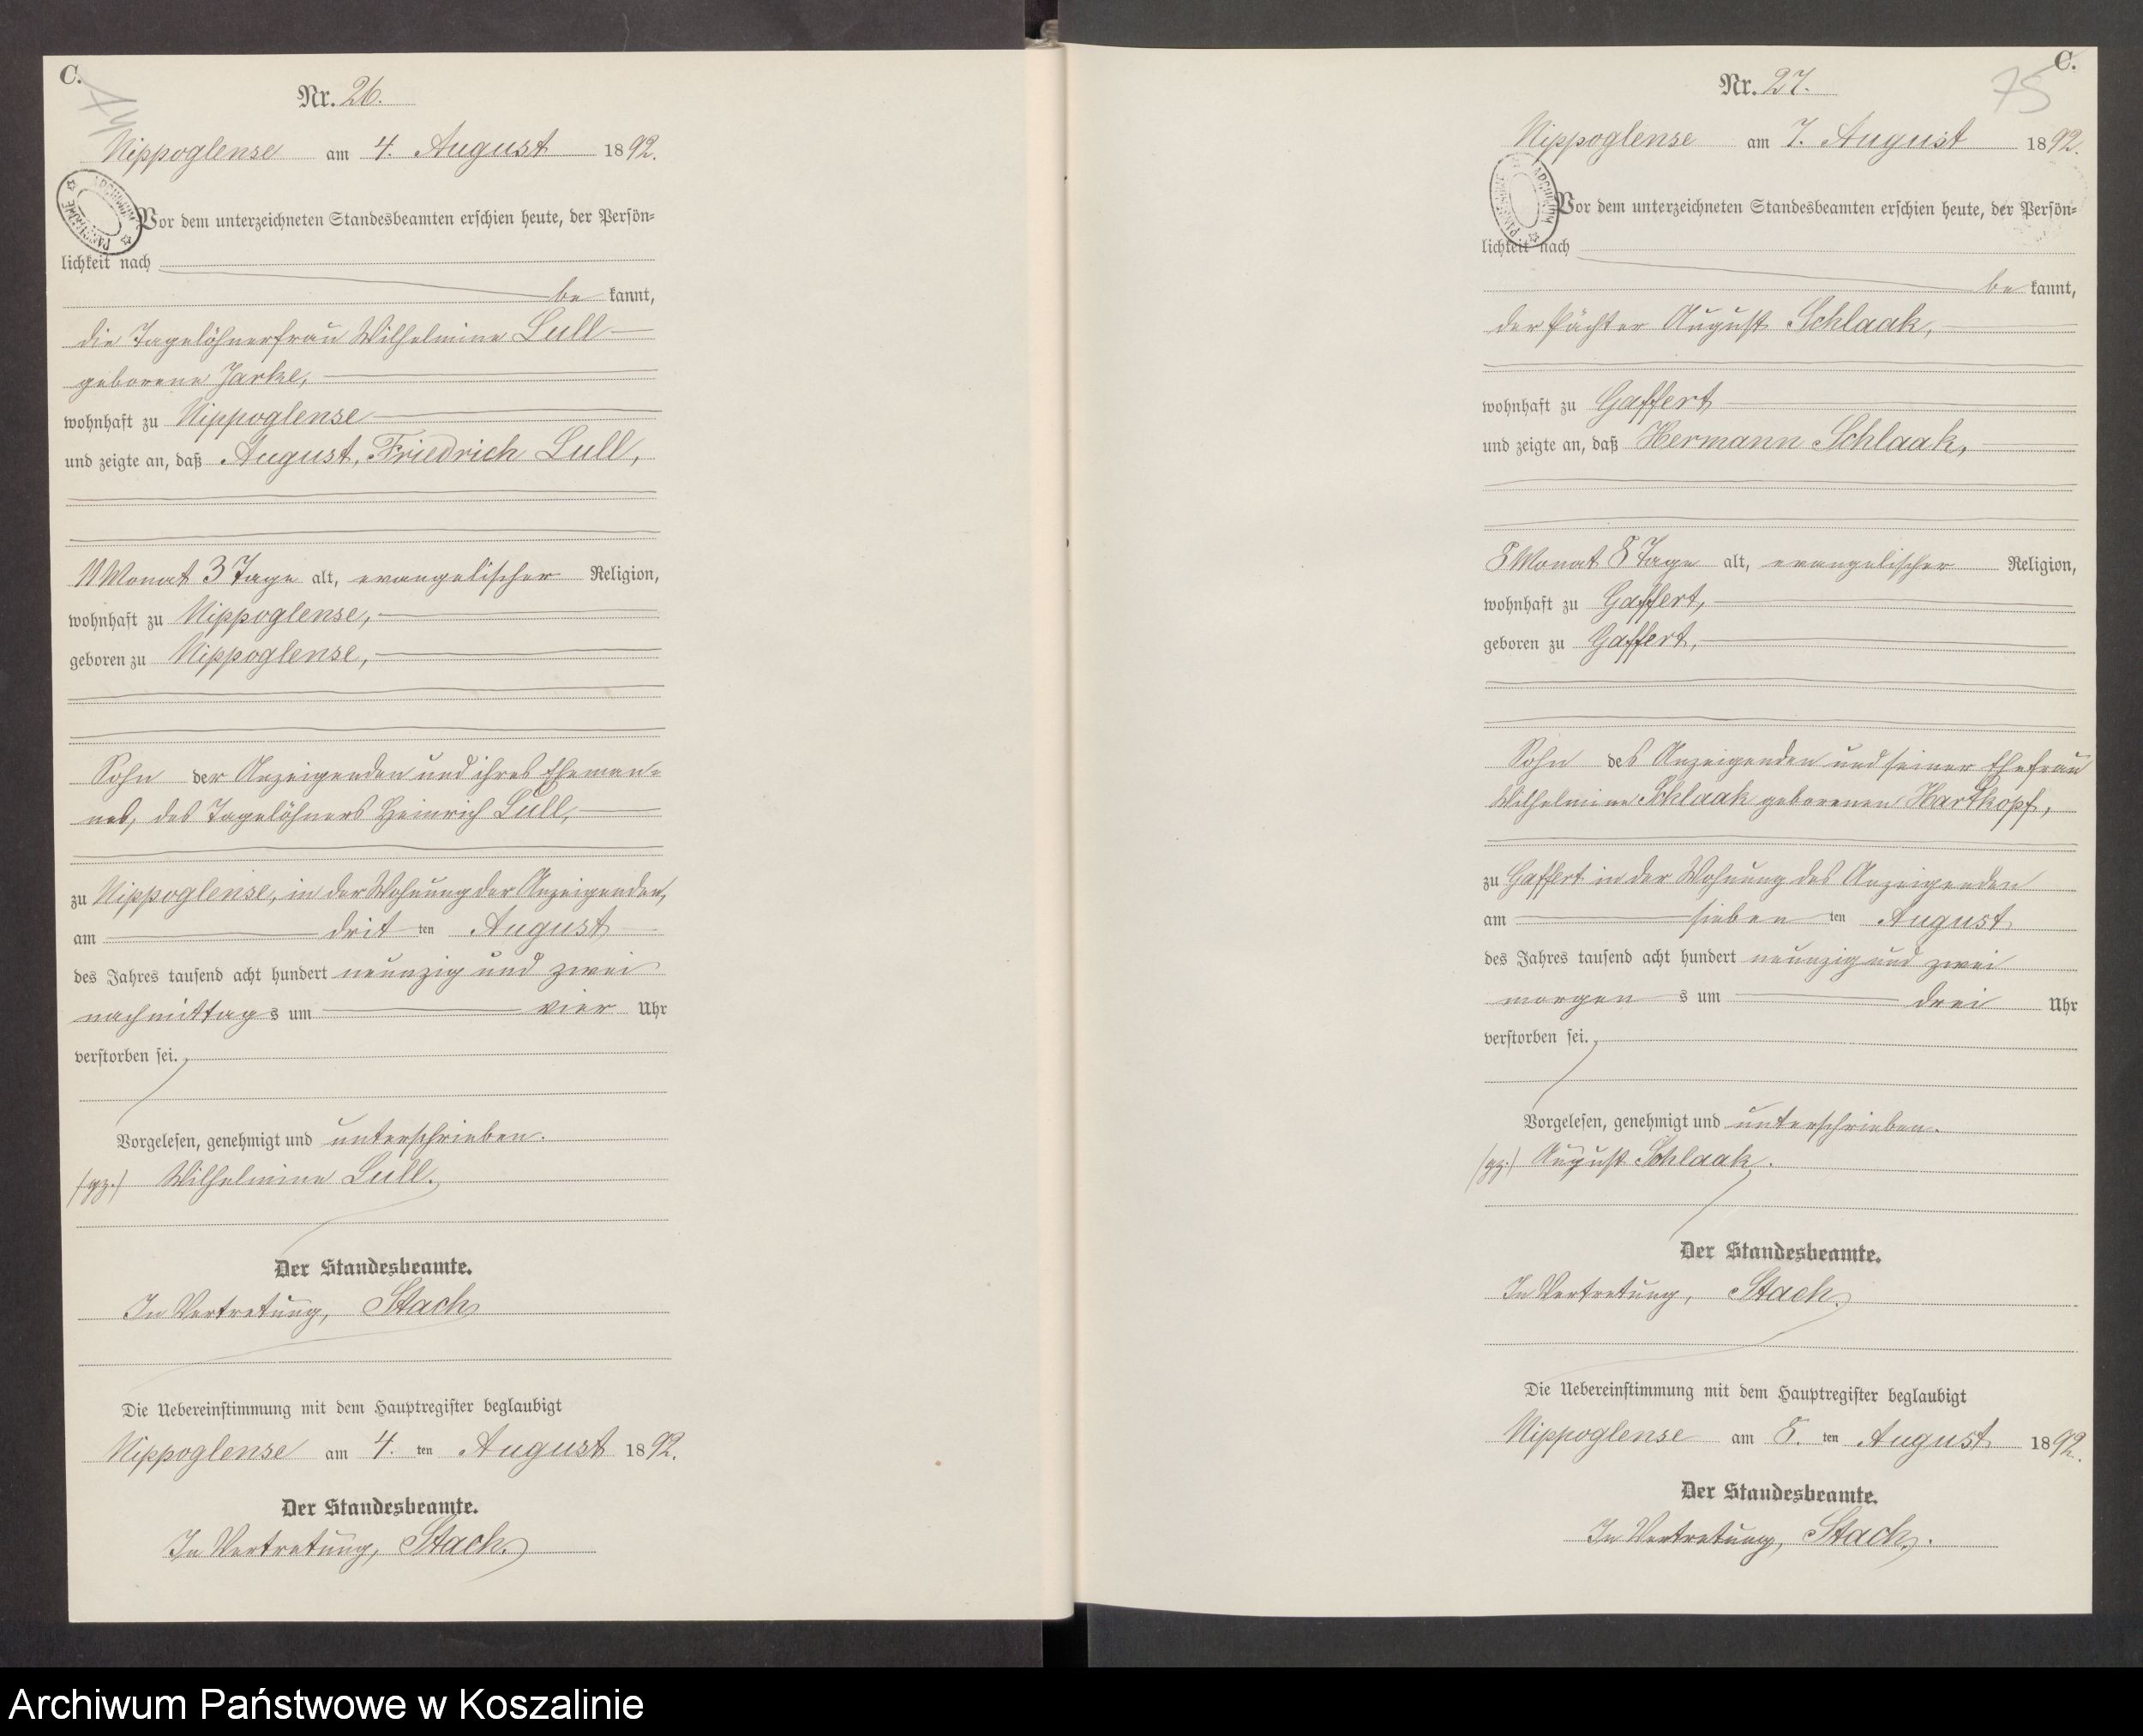 C.
74
Nr. 26.
Nippoglense am 4. August 1892.
Vor dem unterzeichneten Standesbeamten erschien heute, der Persön=
lichkeit nach
be kannt,
die Tagelöhnerfrau Wilhelmine Lull
geborene Jarke,
wohnhaft zu Nippoglense
und zeigte an, daß August, Friedrich Lull,
11 Monat 3 Tage alt, evangelischer Religion,
wohnhaft zu Nippoglense,
geboren zu Nippoglense,
Sohn der Anzeigenden und ihres Eheman=
nes, des Tagelöhners Heinrich Lull,
zu Nippoglense, in der Wohnung der Anzeigenden,
am drit ten August
des Jahres tausend acht hundert neunzig und zwei
nachmittag s um vier Uhr
verstorben sei.
Vorgelesen, genehmigt und unterschrieben.
(gz.) Wilhelmine Lull.
Der Standesbeamte.
In Vertretung, Stach
Die Uebereinstimmung mit dem Hauptregister beglaubigt
Nippoglense am 4. ten August 1892.
Der Standesbeamte.
In Vertretung, Stach.
C.
75
Nr. 27.
Nippoglense am 7. August 1892.
Vor dem unterzeichneten Standesbeamten erschien heute, der Persön=
lichkeit nach
be kannt,
der Pächter August Schlaak,
wohnhaft zu Gaffert
und zeigte an, daß Hermann Schlaak,
8 Monat 8 Tage alt, evangelischer Religion,
wohnhaft zu Gaffert,
geboren zu Gaffert,
Sohn des Anzeigenden und seiner Ehefrau
Wilhelmine Schlaak geborenen Hartkopf,
zu Gaffert in der Wohnung des Anzeigenden
am sieben ten August
des Jahres tausend acht hundert neunzig und zwei
morgen s um drei Uhr
verstorben sei.
Vorgelesen, genehmigt und unterschrieben.
(gz.) August Schlaak.
Der Standesbeamte.
In Vertretung, Stach.
Die Uebereinstimmung mit dem Hauptregister beglaubigt
Nippoglense am 8. ten August 1892.
Der Standesbeamte.
In Vertretung, Stach.
Archiwum Państwowe w Koszalinie